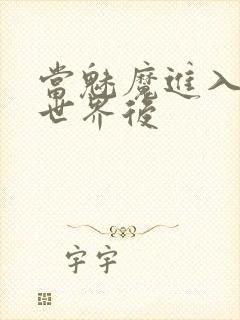 當魅魔進入
世界後
宇宇